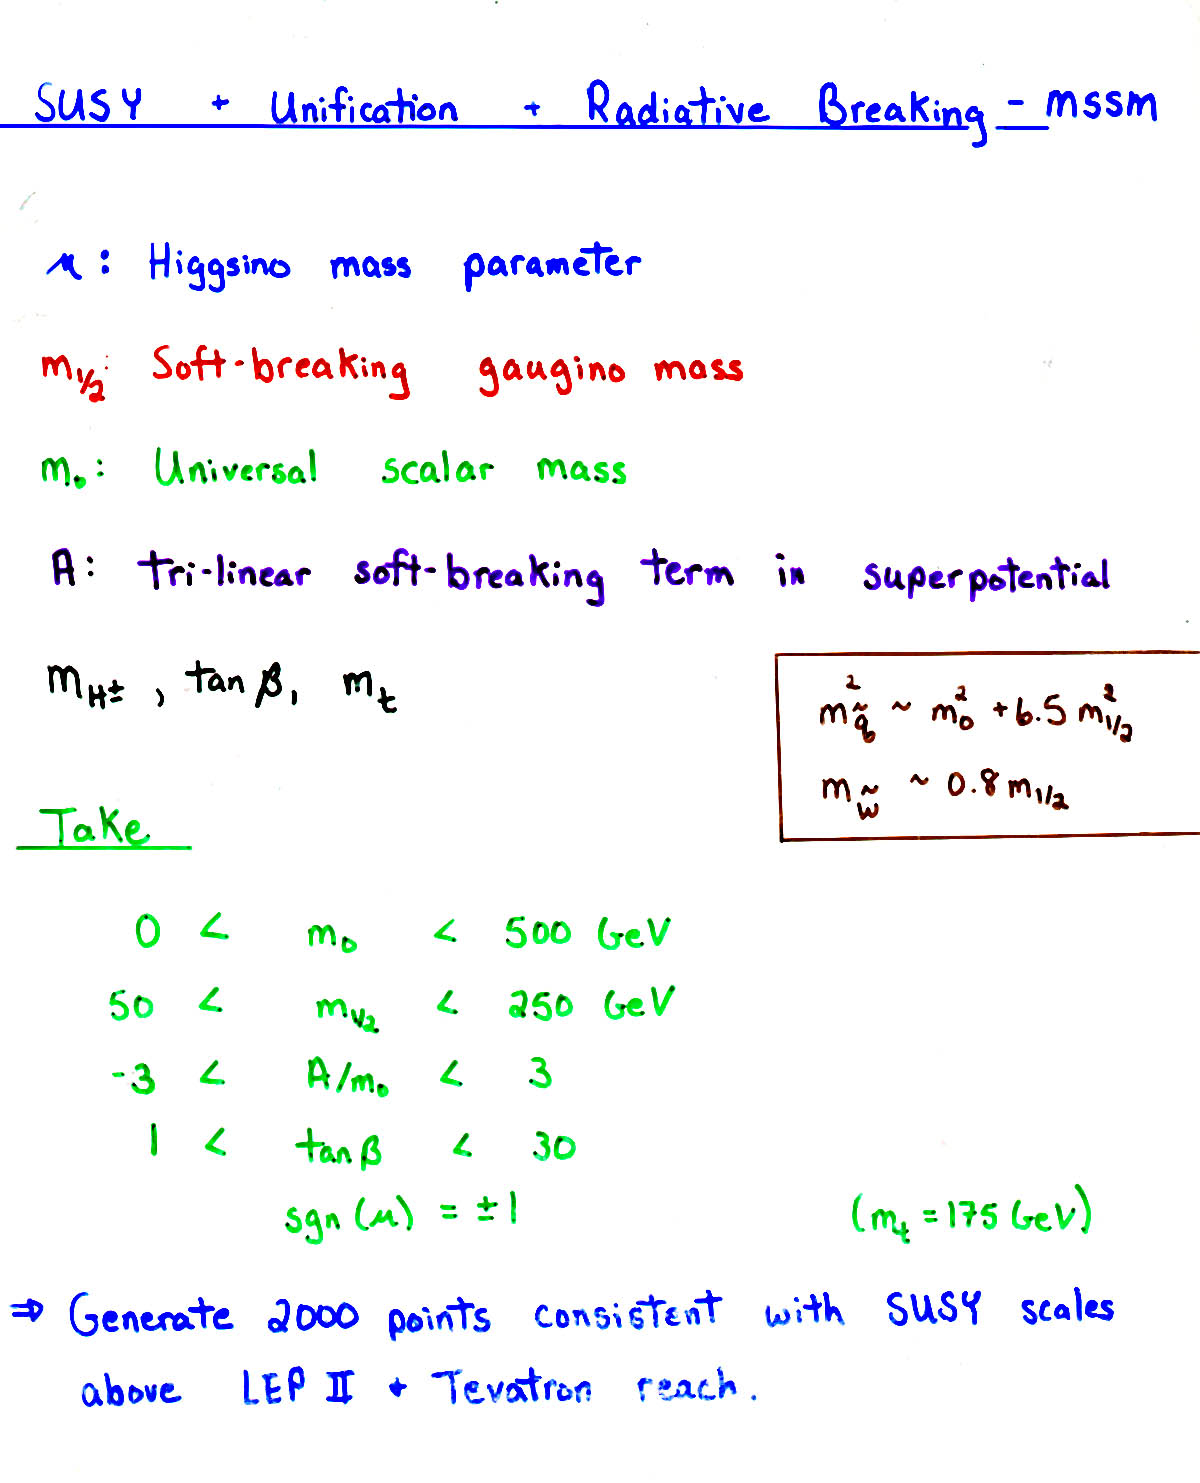 SUSY + Unification + Radiative Breaking - MSSM
μ: Higgsino mass parameter
m_{1/2}: Soft-breaking gaugino mass
m_0: Universal scalar mass
A: tri-linear soft-breaking term in superpotential
m_{H±}, tan β, m_t
m²_{q̃} ~ m_0² + 6.5 m²_{1/2}
m_{W̃} ~ 0.8 m_{1/2}
Take
0 < m_0 < 500 GeV
50 < m_{1/2} < 250 GeV
-3 < A/m_0 < 3
1 < tan β < 30
sgn(μ) = ±1 (m_t = 175 GeV)
⇒ Generate 2000 points consistent with SUSY scales
above LEP II + Tevatron reach.